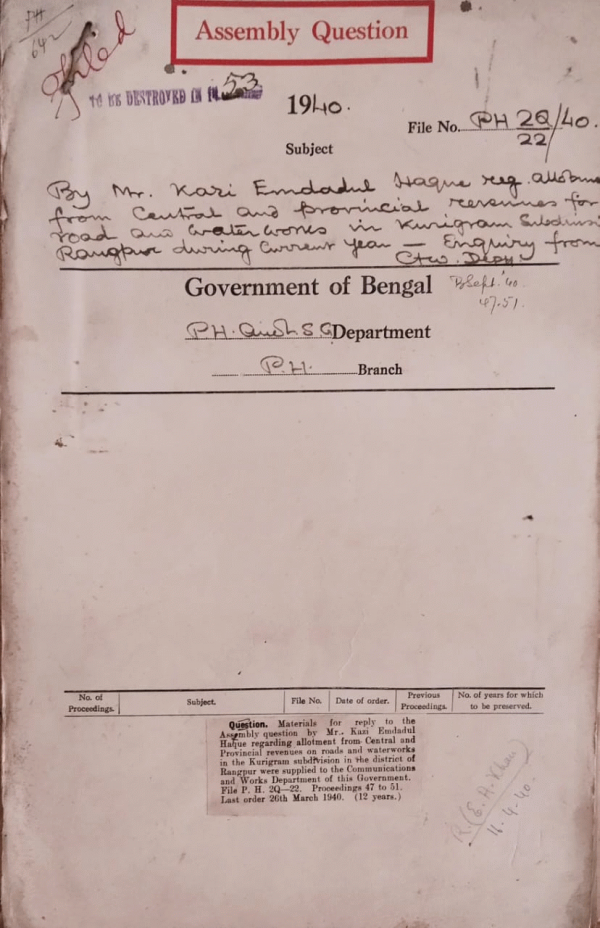 PH
642
Filed
Assembly Question
TO BE DESTROYED IN 19 53
1940.
File No. PH 2Q/40.
22
Subject
By Mr. Kazi Emdadul Haque reg. allotme
from Central and provincial revenues for
road and waterworks in Kurigram Subdivisi
Rangpur during current year — Enquiry from
C & W. Dept.
Government of Bengal
B Sept. '40
47-51.
PH. and L.S.G Department
P.H. Branch
No. of Proceedings.
Subject.
File No.
Date of order.
Previous Proceedings.
No. of years for which to be preserved.
Question. Materials for reply to the
Assembly question by Mr. Kazi Emdadul
Haque regarding allotment from Central and
Provincial revenues on roads and waterworks
in the Kurigram subdivision in the district of
Rangpur were supplied to the Communications
and Works Department of this Government.
File P. H. 2Q—22. Proceedings 47 to 51.
Last order 26th March 1940. (12 years.)
11.4.40